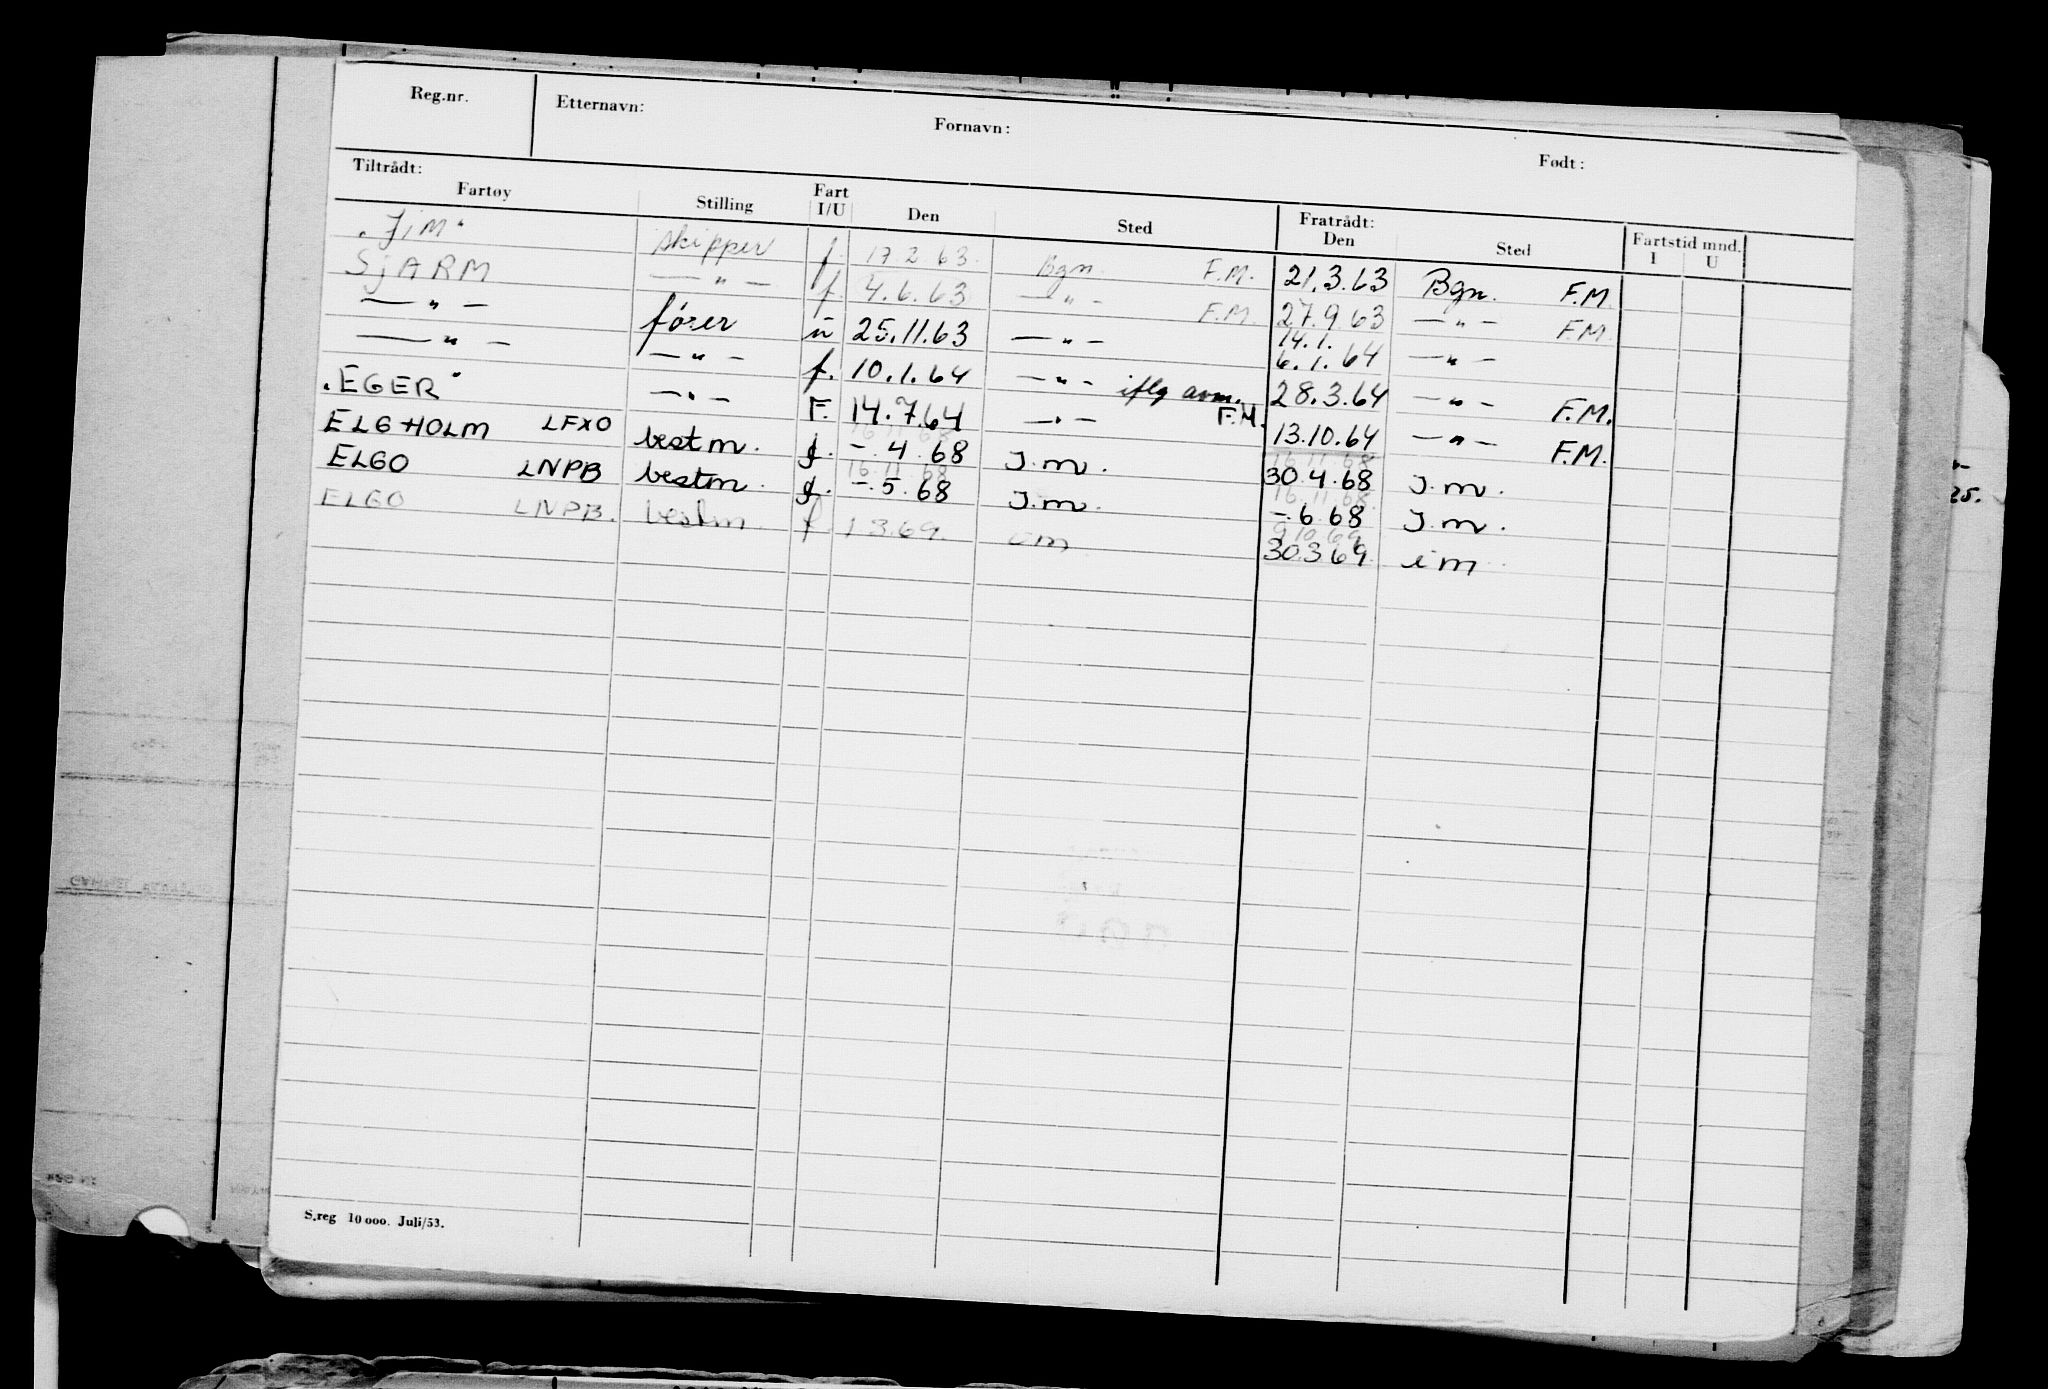 Reg.nr. Etternavn: Fornavn: Født:
Tiltrådt: Fratrådt:
Fartøy Stilling Fart I/U Den Sted Den Sted Fartstid mnd. I U
"JIM" skipper f. 17.2.63. Bgn. F.M. 21.3.63 Bgn. F.M.
SjARM — " — f. 4.6.63 — " — F.M. 27.9.63 — " — F.M.
— " — fører u 25.11.63 — " — 14.1. 6.1.64 — " —
— " — — " — f. 10.1.64 — " — iflg 28.3.64 — " — F.M.
"EGER" — " — F. 14.7.64 — " — F.M. 13.10.64 — " — F.M.
16.11.68 16.11.68
ELGHOLM LFXO bestm. f. -.4.68 I.m. 30.4.68 I.m.
16.11.68 16.11.68
ELGO LNPB bestm. f. -.5.68 I.m. -.6.68 I.m.
9.10.69
ELGO LNPB. bestm. f. 1.3.69. im 30.3.69. im
S.reg 10 000. Juli/53.
25.